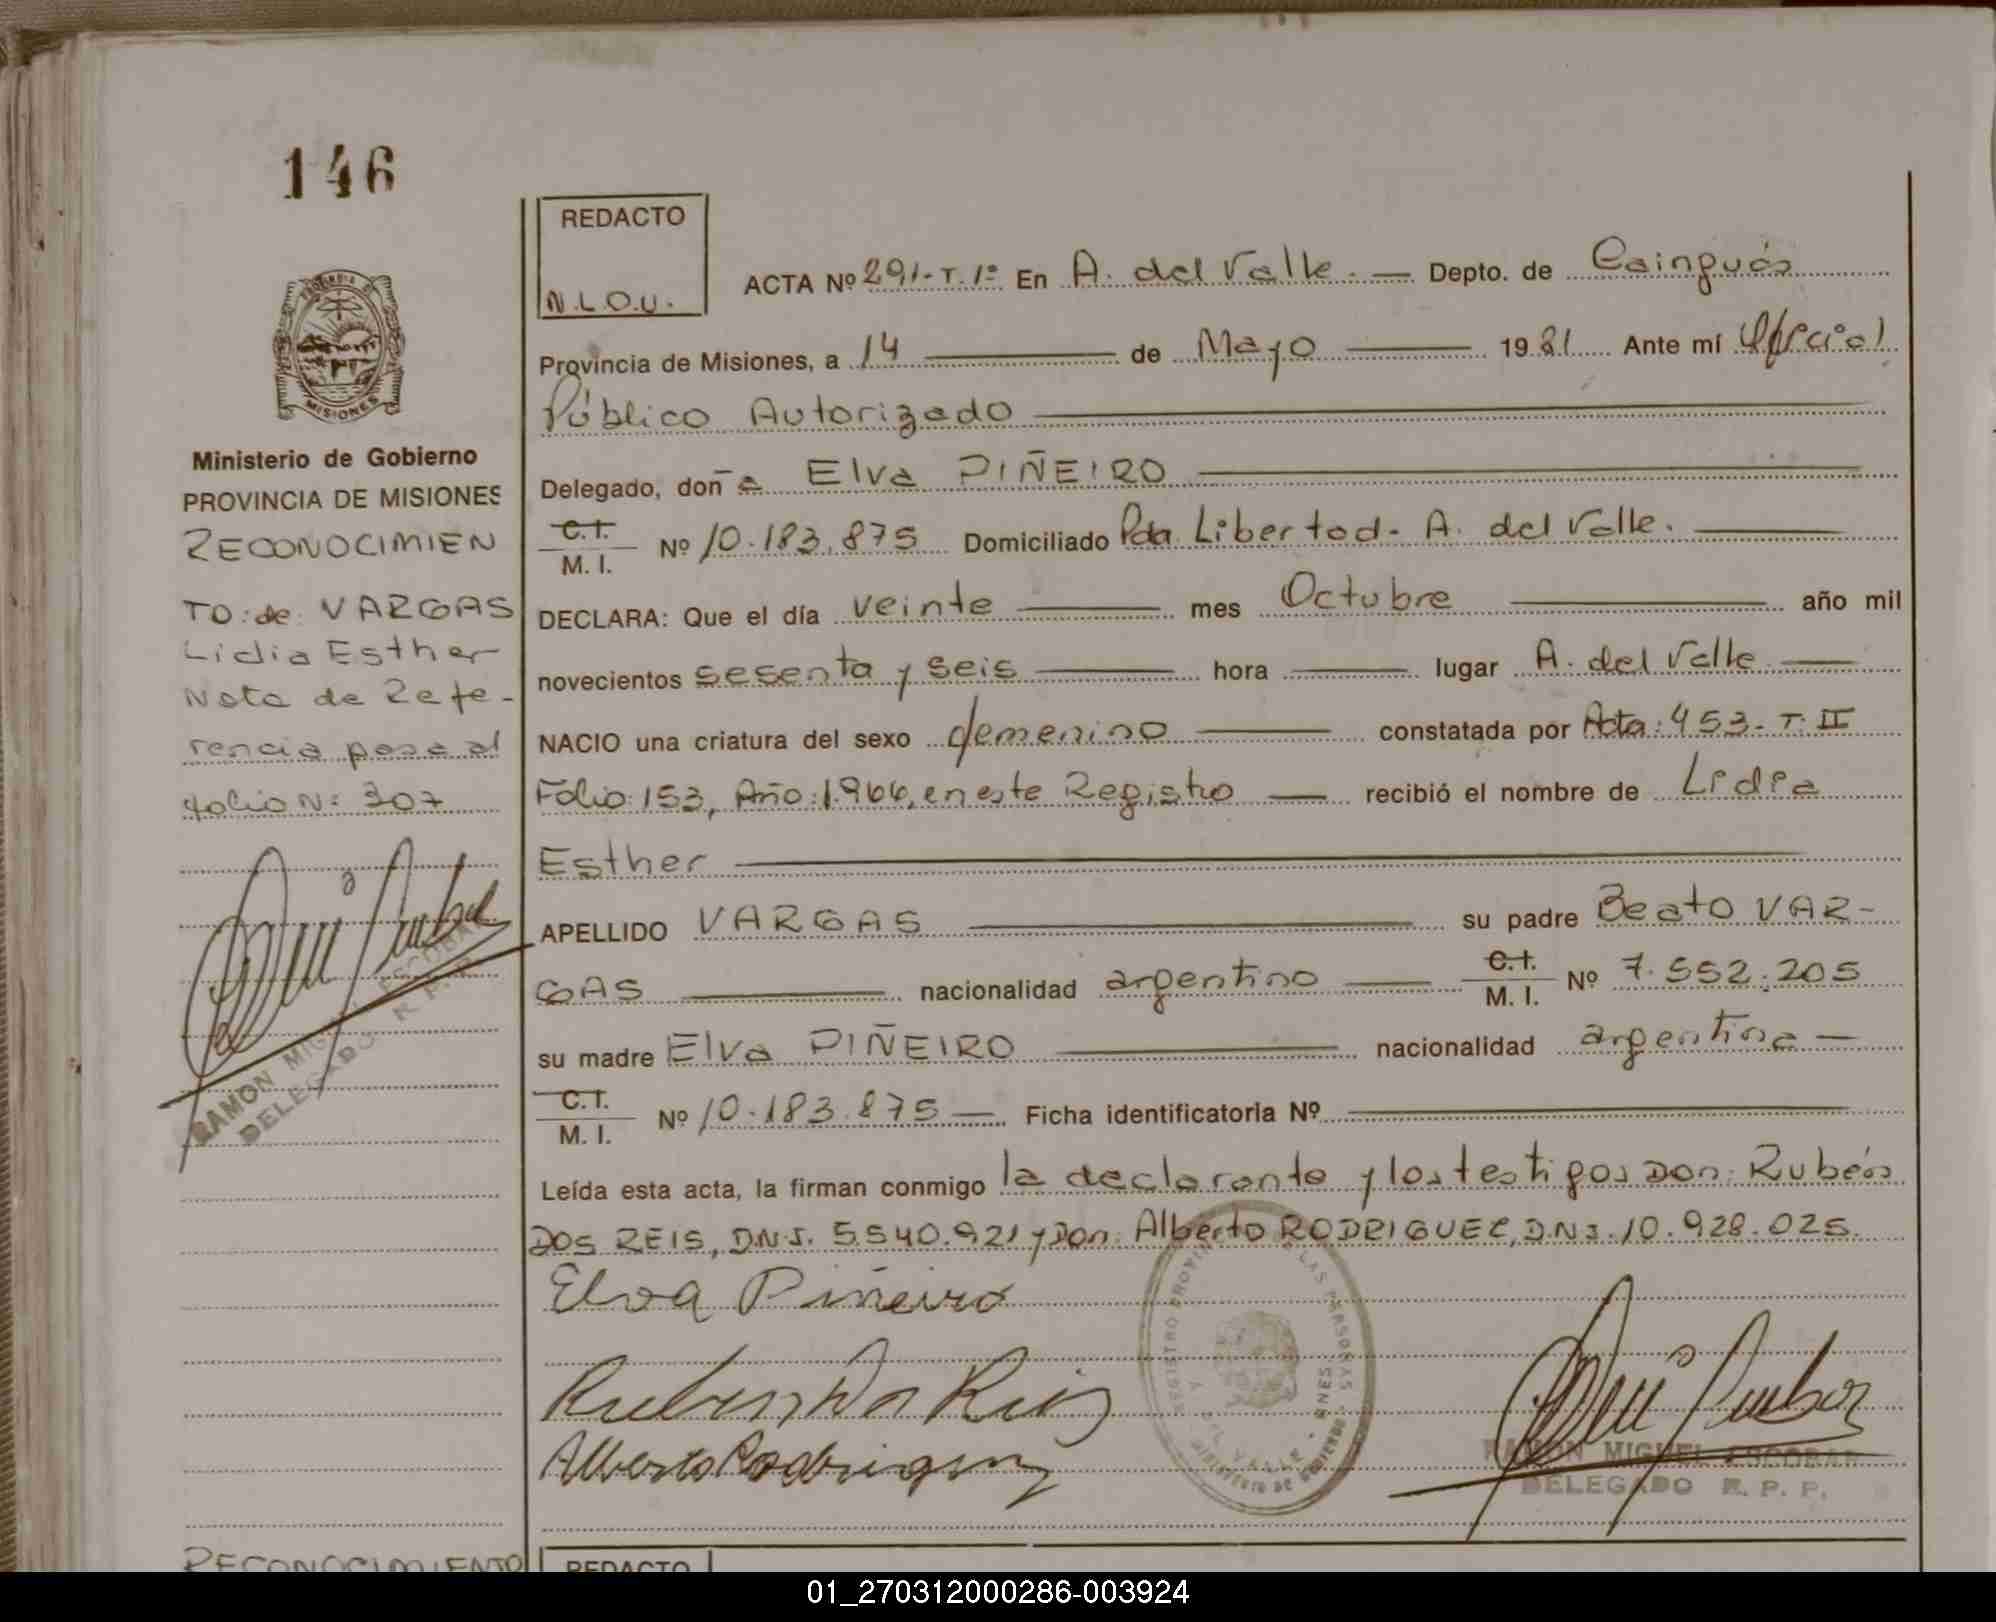 146
PROVINCIA D
MISIONES
Ministerio de Gobierno
PROVINCIA DE MISIONES
RECONOCIMIEN
TO: de: VARGAS
Lidia Esther
Nota de Refe-
rencia pasa al
folio Nº 307
RAMON MIGUEL ESCOBAR
DELEGADO R. P.
REDACTO
N.L.O.U.
ACTA Nº 291-T.1º En A. del Valle. — Depto. de Cainguás
Provincia de Misiones, a 14 — de Mayo — 1981 Ante mí Oficial
Público Autorizado —
Delegado, doña Elva PIÑEIRO —
C.I.
M. I. Nº 10.183.875 Domiciliado Pda. Libertad - A. del Valle. —
DECLARA: Que el día veinte — mes Octubre — año mil
novecientos sesenta y seis — hora — lugar A. del Valle —
NACIO una criatura del sexo femenino — constatada por Acta: 453-T. II
Folio: 153, Año: 1.966, en este Registro — recibió el nombre de Lidia
Esther —
APELLIDO VARGAS — su padre Beato VAR-
GAS — nacionalidad argentino — C.I.
M. I. Nº 7.552.205
su madre Elva PIÑEIRO — nacionalidad argentina —
C.I.
M. I. Nº 10.183.875 — Ficha identificatoria Nº —
Leída esta acta, la firman conmigo la declarante y los testigos Don: Rubén
DOS REIS, D.N.I. 5.540.921 y Don: Alberto RODRIGUEZ, D.N.I. 10.928.025.
Elva Piñeiro
Ruben Dos Reis
Alberto Rodriguez
REGISTRO PROVIN LAS PERSONAS
DEL VALLE - MNES
MINISTERIO DE GOBIERNO
RAMON MIGUEL ESCOBAR
DELEGADO R. P. P.
RECONOCIMIENTO
REDACTO
01_270312000286-003924